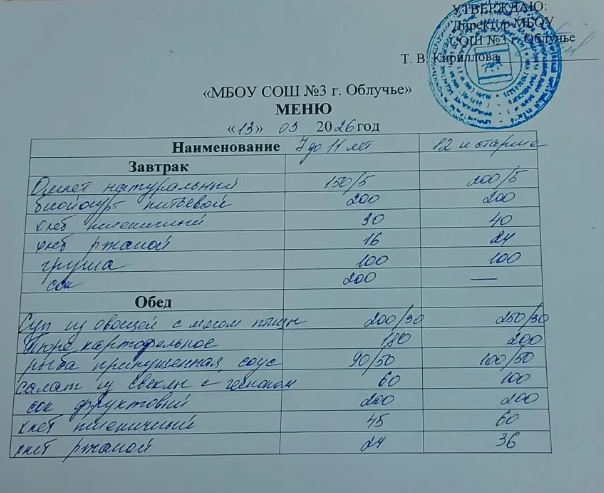 УТВЕРЖДАЮ:
Директор МБОУ
СОШ №3 г. Облучье
Т. В. Кириллова
«МБОУ СОШ №3 г. Облучье»
МЕНЮ
«13» 03 2026 год
Наименование 7 до 11 лет 12 и старше
Завтрак
Омлет натуральный 150/5 200/5
биойогурт питьевой 200 200
хлеб пшеничный 30 40
хлеб ржаной 16 24
груша 100 100
сок 200 —
Обед
Суп из овощей с мясом птицы 200/30 250/30
Пюре картофельное 180 200
рыба припущенная, соус 90/50 100/50
салат из свеклы с чесноком 60 100
сок фруктовый 200 200
хлеб пшеничный 45 60
хлеб ржаной 24 36